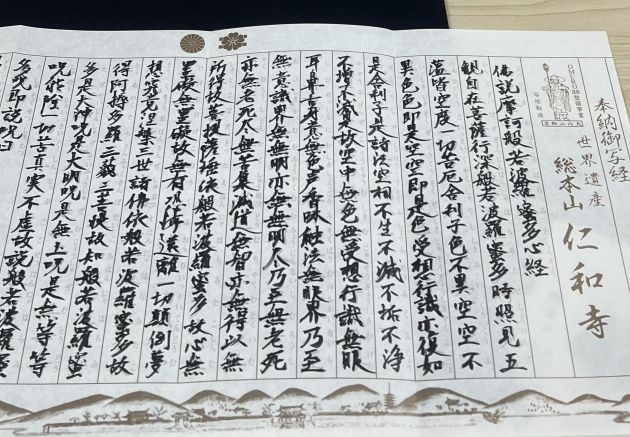 奉納御写経
世界遺産
総本山 仁和寺
OMURO88
佛説摩訶般若波羅蜜多心経
観自在菩薩行深般若波羅蜜多時照見五
蘊皆空度一切苦厄舎利子色不異空空不
異色色即是空空即是色受想行識亦復如
是舎利子是諸法空相不生不滅不垢不浄
不増不減是故空中無色無受想行識無眼
耳鼻舌身意無色声香味触法無眼界乃至
無意識界無無明亦無無明尽乃至無老死
亦無老死尽無苦集滅道無智亦無得以無
所得故菩提薩埵依般若波羅蜜多故心無
罣礙無罣礙故無有恐怖遠離一切顛倒夢
想究竟涅槃三世諸佛依般若波羅蜜多故
得阿耨多羅三藐三菩提故知般若波羅蜜
多是大神呪是大明呪是無上呪是無等等
呪能除一切苦真実不虚故説般若波羅蜜
多呪即説呪曰